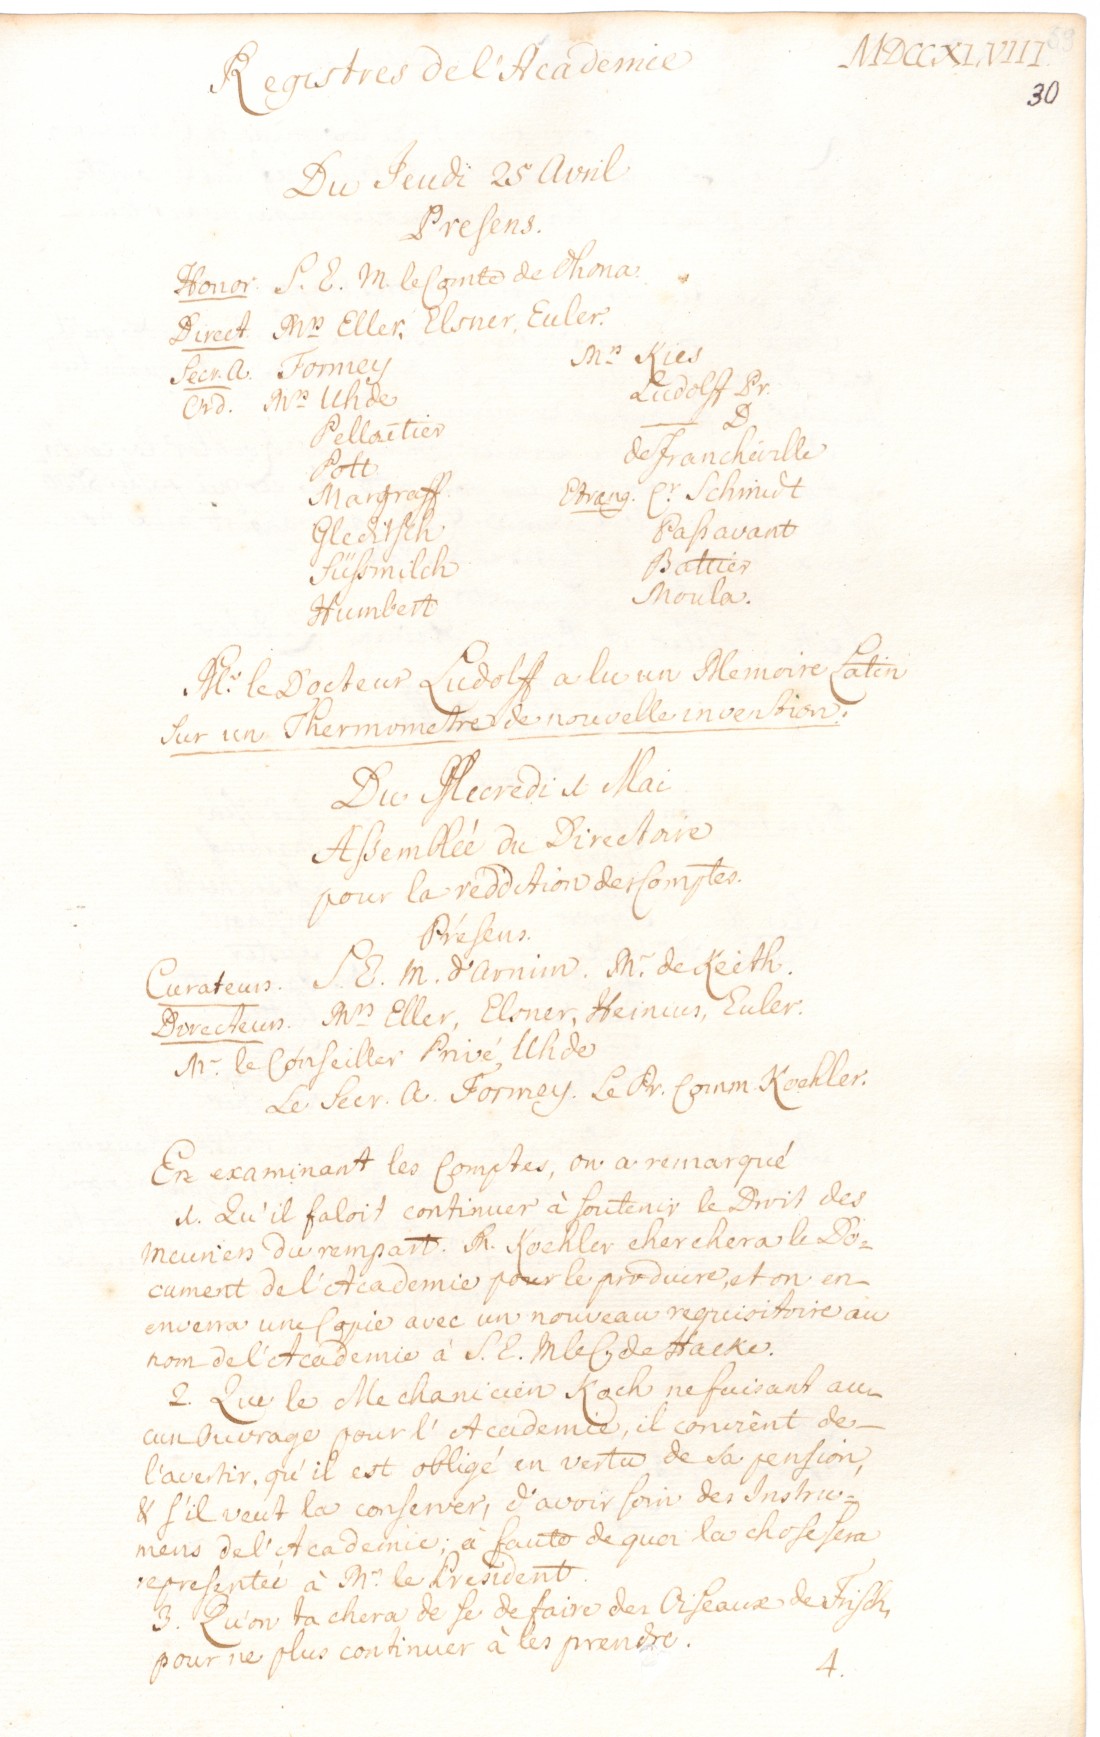 Registres de l'Academie
MDCCXLVIII
30
Du Jeudi 25 Avril
Presens.
Honor. S. E. M. le Comte de Dhona.
Direct. Mrs Eller, Elsner, Euler.
Secr. A. Formey
Ord. Mrs Uhde
Pelloutier
Pott
Margraff
Gleditsch
Süssmilch
Humbert
Mrs Kies
Ludolff Pr.
—— D
de Francheville
Etrang. Cr. Schmidt
Passavant
Battier
Moula.
Mr. le Docteur Ludolff a lu un Memoire Latin
sur un Thermometre de nouvelle invention.
Du Mecredi 1 Mai
Assemblée du Directoire
pour la reddition des Comptes.
Présens.
Curateurs. S. E. M. d'Arnim. Mr. de Keith.
Directeurs. Mrs Eller, Elsner, Heinius, Euler.
Mr. le Conseiller Privé Uhde
Le Secr. A. Formey. Le Pr. Comm. Koehler.
En examinant les Comptes, on a remarqué
1. Qu'il faloit continuer à soutenir le Droit des
meuniers du rempart. M. Koehler cherchera le Do-
cument de l'Academie pour le produire, et on en
enverra une Copie avec un nouveau requisitoire au
nom de l'Academie à S. E. M le C. de Hacke.
2. Que le Mechanicien Koch ne faisant au-
cun Ouvrage pour l'Academie, il convient de
l'avertir, qu'il est obligé en vertu de sa pension,
& s'il veut la conserver, d'avoir soin des Instru-
mens de l'Academie; à faute de quoi la chose sera
representée à Mr. le President.
3. Qu'on tachera de se defaire des Oiseaux de Frisch,
pour ne plus continuer à les prendre.
4.